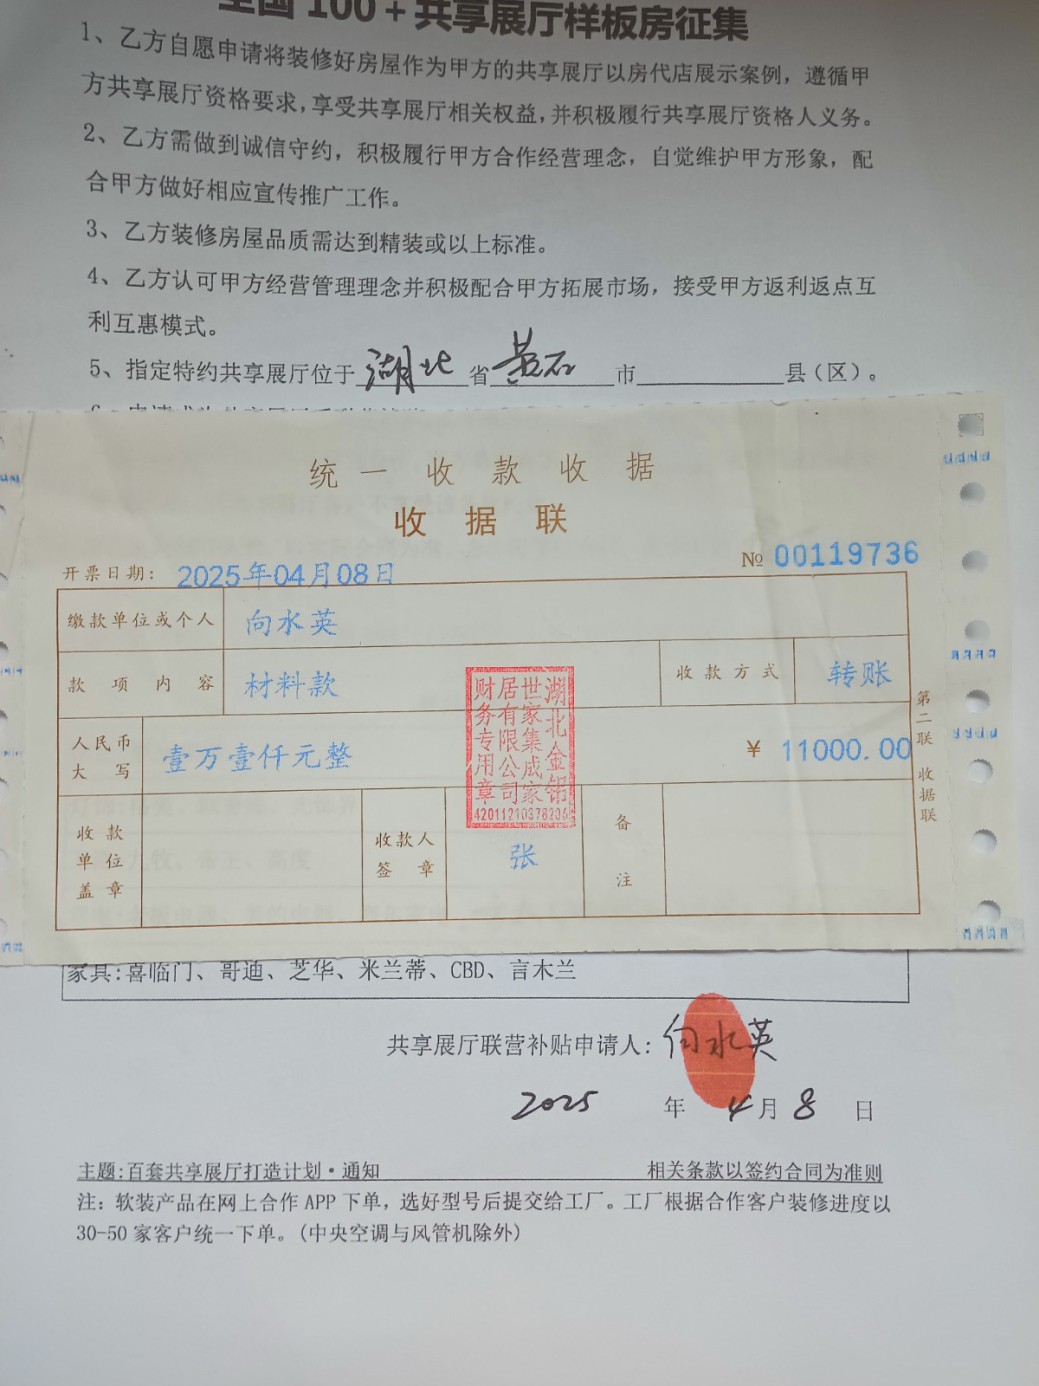 全国 100 + 共享展厅样板房征集
1、乙方自愿申请将装修好房屋作为甲方的共享展厅以房代店展示案例，遵循甲
方共享展厅资格要求，享受共享展厅相关权益，并积极履行共享展厅资格人义务。
2、乙方需做到诚信守约，积极履行甲方合作经营理念，自觉维护甲方形象，配
合甲方做好相应宣传推广工作。
3、乙方装修房屋品质需达到精装或以上标准。
4、乙方认可甲方经营管理理念并积极配合甲方拓展市场，接受甲方返利返点互
利互惠模式。
5、指定特约共享展厅位于 湖北 省 黄石 市 县（区）。
统一收款收据
收据联
开票日期： 2025年04月08日 № 00119736
缴款单位或个人 向水英
款项内容 材料款 收款方式 转账
人民币大写 壹万壹仟元整 ¥ 11000.00
收款单位盖章 收款人签章 张 备注
第二联 收据联
湖北金钥
世家集成家
居有限公司
财务专用章
家具：喜临门、哥迪、芝华、米兰蒂、CBD、言木兰
共享展厅联营补贴申请人： 向水英
2025 年 4 月 8 日
主题：百套共享展厅打造计划·通知 相关条款以签约合同为准则
注：软装产品在网上合作 APP 下单，选好型号后提交给工厂。工厂根据合作客户装修进度以
30-50 家客户统一下单。(中央空调与风管机除外)